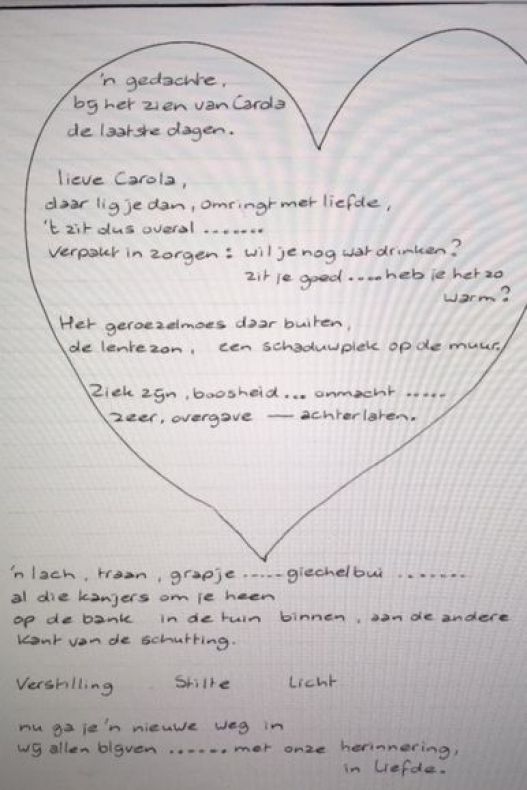 'n gedachte,
bij het zien van Carola
de laatste dagen.
lieve Carola,
daar lig je dan, omringt met liefde,
't zit dus overal .......
verpakt in zorgen : wil je nog wat drinken?
zit je goed .... heb je het zo
warm?
Het geroezelmoes daar buiten,
de lentezon, een schaduwplek op de muur.
Ziek zijn, boosheid ... onmacht .....
zeer, overgave — achterlaten.
'n lach, traan, grapje ..... giechelbui .......
al die kanjers om je heen
op de bank in de tuin binnen, aan de andere
kant van de schutting.
Verstilling Stilte Licht
nu ga je 'n nieuwe weg in
wij allen blijven ....... met onze herinnering,
in liefde.